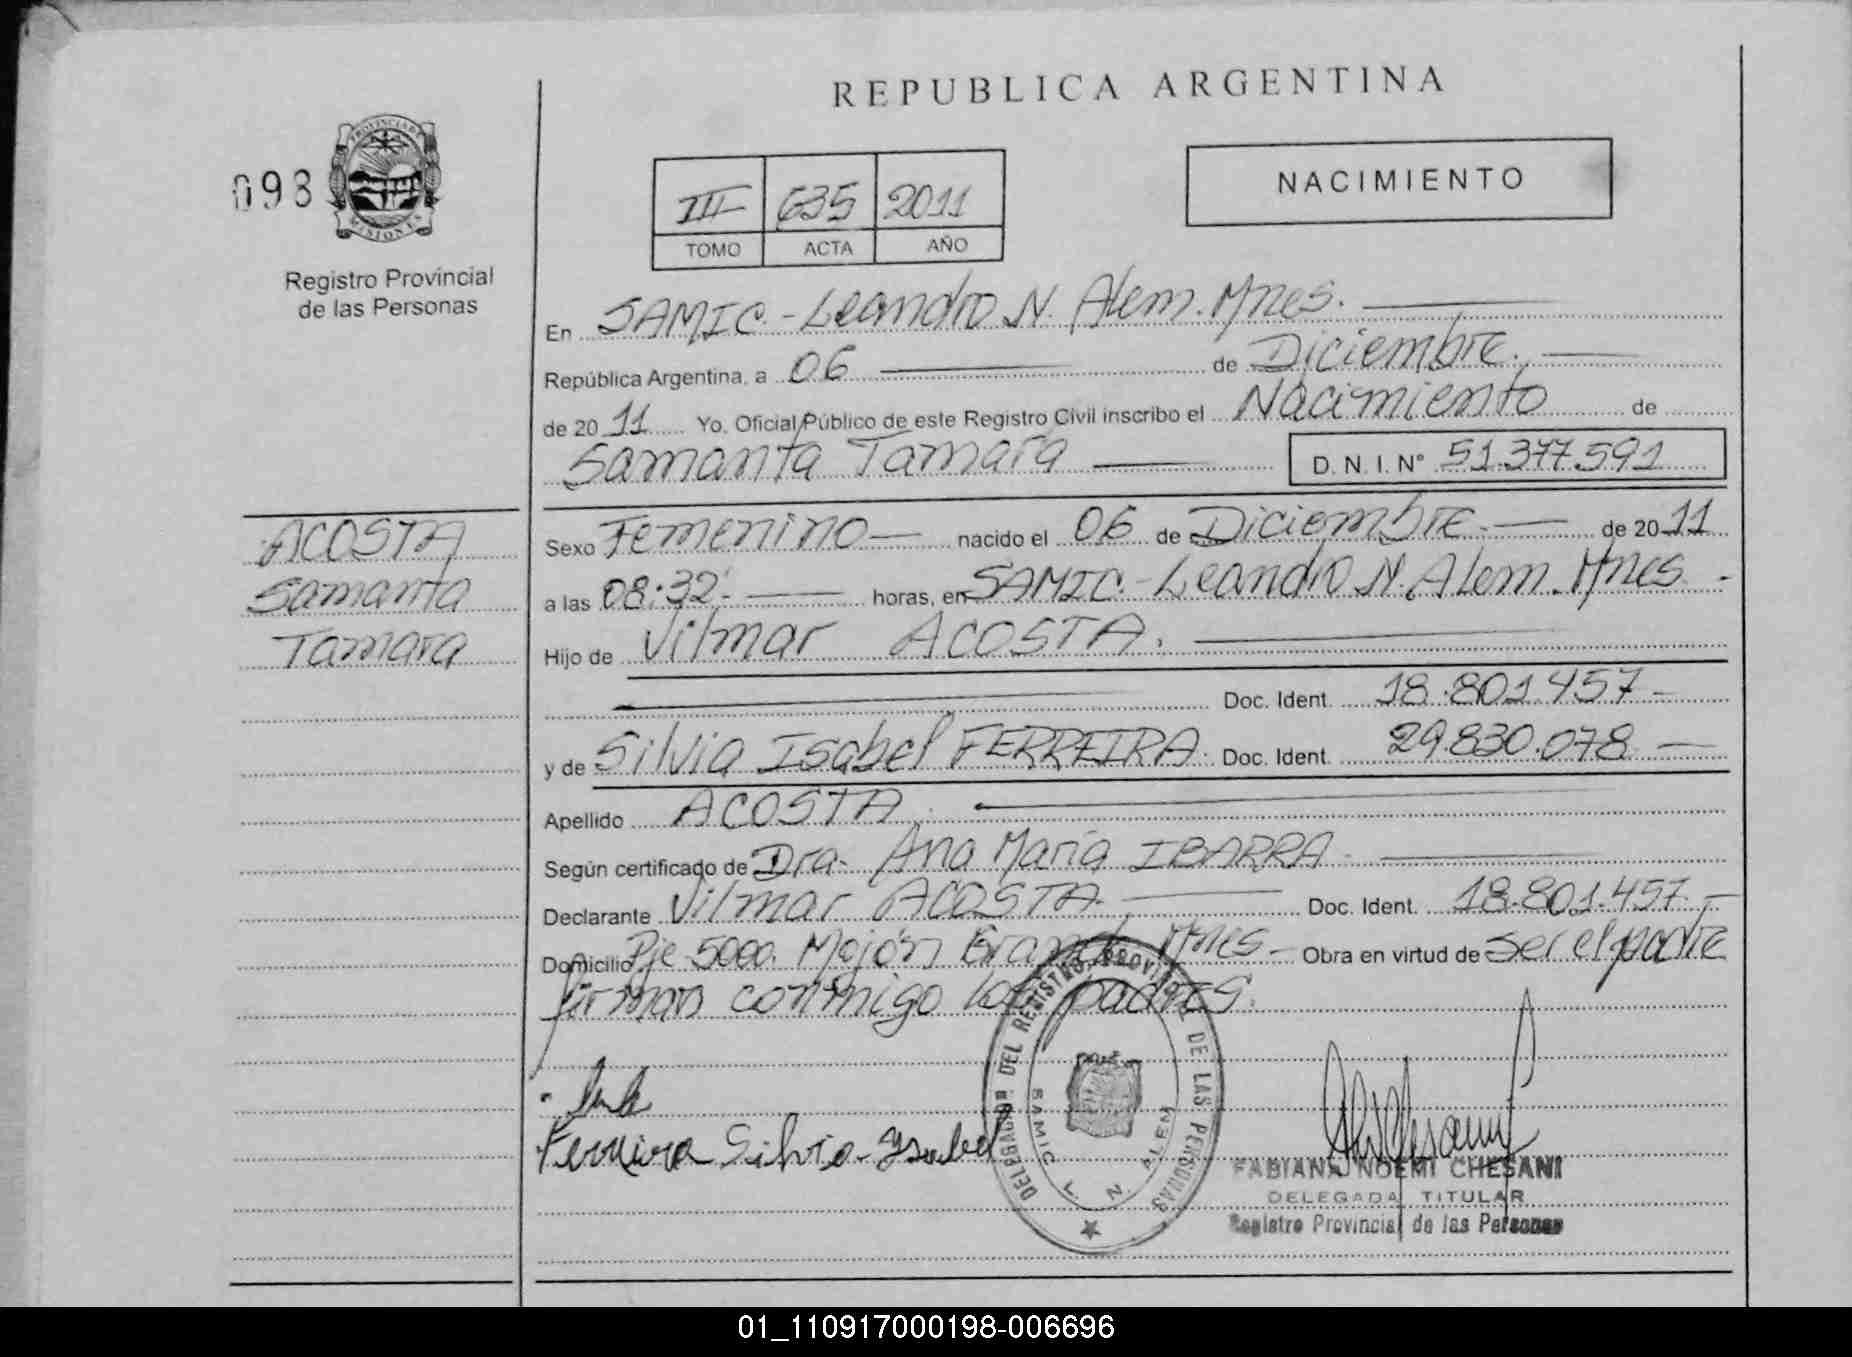 REPUBLICA ARGENTINA
098
PROVINCIA DE
MISIONES
Registro Provincial
de las Personas
III 635 2011
TOMO ACTA AÑO
NACIMIENTO
En SAMIC.-Leandro N. Alem. Mnes.
República Argentina, a 06 de Diciembre.
de 2011 Yo, Oficial Público de este Registro Civil inscribo el Nacimiento de
Samanta Tamara D. N. I. N° 51.377.591
ACOSTA
Samanta
Tamara
Sexo Femenino nacido el 06 de Diciembre. de 2011
a las 08:32. horas, en SAMIC.-Leandro N. Alem. Mnes.
Hijo de Vilmar ACOSTA.
Doc. Ident. 18.801.457
y de Silvia Isabel FERREIRA. Doc. Ident. 29.830.078
Apellido ACOSTA.
Según certificado de Dra. Ana María IBARRA.
Declarante Vilmar ACOSTA. Doc. Ident. 18.801.457.
Domicilio Pje 5000. Mojón Grande Mnes. Obra en virtud de ser el padre
firman conmigo los padres.
Ferreira Silvia Ysabel
DELEGACION DEL REGISTRO PROVINCIAL DE LAS PERSONAS
SAMIC L. N. ALEM
FABIANA NOEMI CHESANI
DELEGADA TITULAR
Registro Provincial de las Personas
01_110917000198-006696